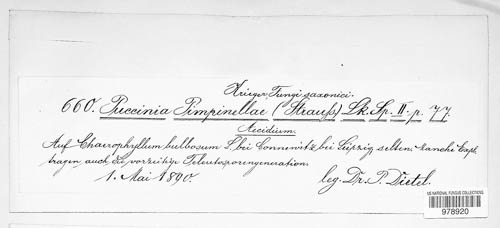 Krieger Fungi saxonici.
660. Puccinia Pimpinellae (Strauß) Lk. Sp. II. p. 77.
Aecidium.
Auf Chaerophyllum bulbosum L. bei Connewitz bei Leipzig selten. Manche Expl.
tragen auch die vorzeitige Teleutosporengeneration.
1. Mai 1890.
leg. Dr. P. Dietel.
US NATIONAL FUNGUS COLLECTIONS
978920